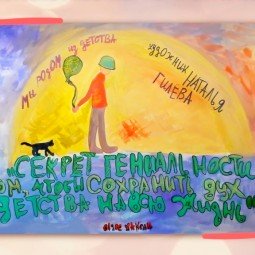 МЫ РОДОМ ИЗ ДЕТСТВА
ХУДОЖНИК НАТАЛЬЯ
ГИЛЕВА
"СЕКРЕТ ГЕНИАЛЬНОСТИ
ТОМ, ЧТОБЫ СОХРАНИТЬ ДУХ
ДЕТСТВА НА ВСЮ ЖИЗНЬ"